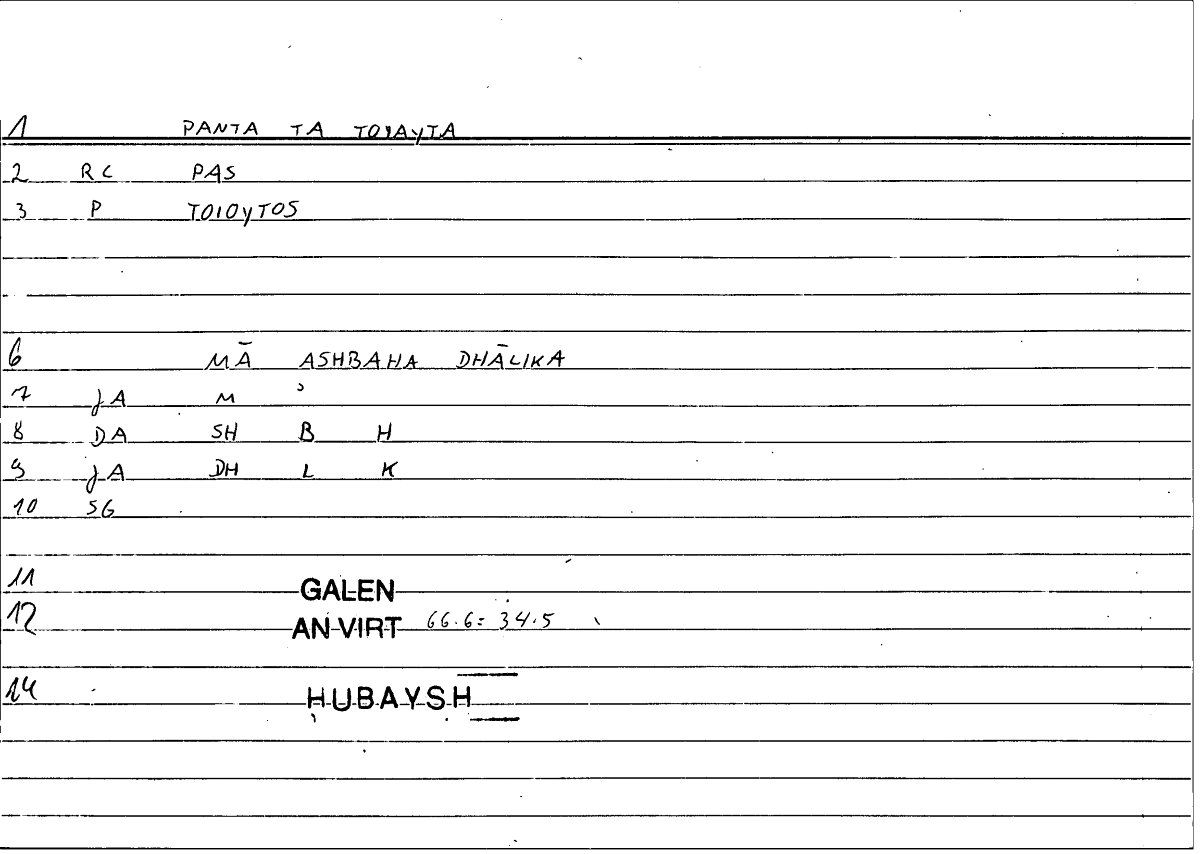 1 PANTA TA TOIAYTA
2 RC PAS
3 P TOIOYTOS
6 MĀ ASHBAHA DHĀLIKA
7 JA M ʾ
8 DA SH B H
9 JA DH L K
10 SG
11 GALEN
12 AN VIRT 66.6 = 34.5
14 ḤUBAYSH